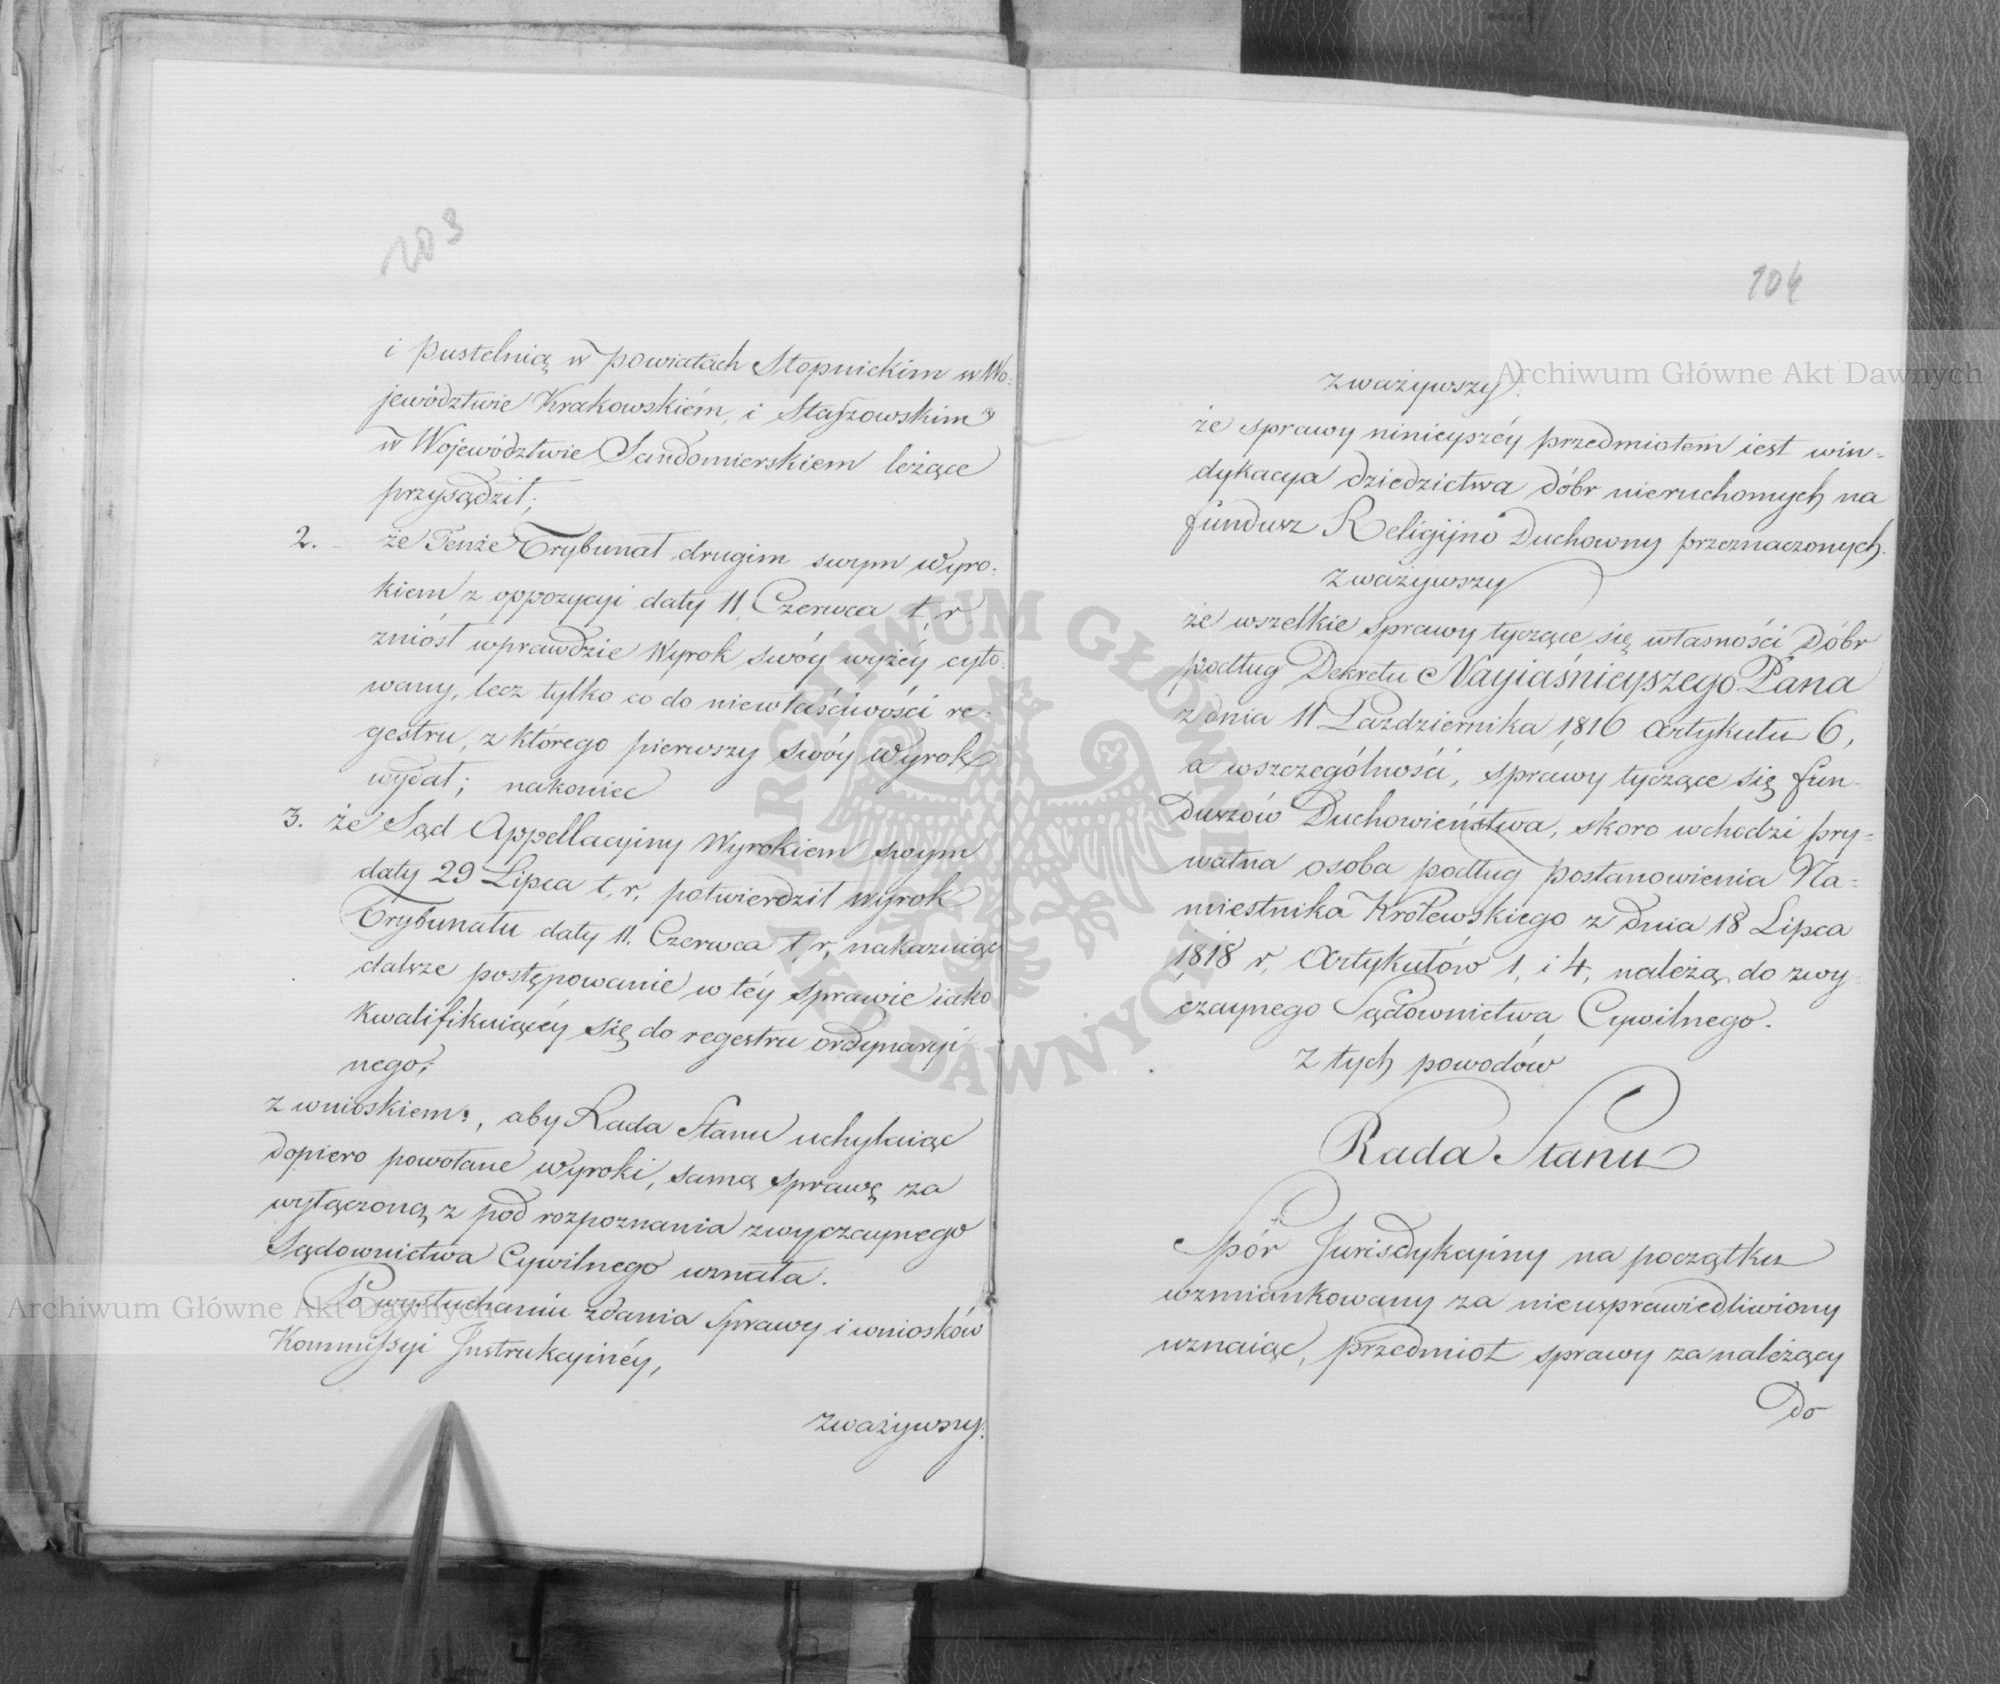 103
i pustelnią w powiatach Stopnickim w Wo-
jewództwie Krakowskiém, i Staszowskim
w Województwie Sandomierskiem leżące
przysądził;
2. że Tenże Trybunał drugim swym Wyro-
kiem z oppozycyi daty 11 Czerwca t. r
zniósł wprawdzie Wyrok swóy wyżéy cyto-
wany, lecz tylko co do niewłaściwości re-
gestru, z którego pierwszy swóy Wyrok
wydał; nakoniec
3. że Sąd Appellacyiny Wyrokiem swym
daty 29 Lipca t. r. potwierdził wyrok
Trybunału daty 11. Czerwca t. r. nakazuiąc
dalsze postępowanie w téy sprawie iako
kwalifikuiącéy się do regestru ordynaryi
nego;
z wnioskiem:, aby Rada Stanu uchylaiąc
dopiero powołane wyroki, samą sprawę za
wyłączoną z pod rozpoznania zwyczaynego
Sądownictwa Cywilnego uznała.
Po wysłuchaniu zdania Sprawy i wniosków
Kommissyi Instrukcyinéy,
zważywszy:
104
zważywszy:
że sprawy ninieyszéy przedmiotem iest win-
dykacya dziedzictwa dóbr nieruchomych na
fundusz Religijno Duchowny przeznaczonych.
zważywszy
że wszelkie sprawy tyczące się własności Dóbr
podług Dekretu Nayiaśnieyszego Pana
z dnia 11 Pazdziernika 1816 Artykułu 6,
a wszczególności, sprawy tyczące się fun-
duszów Duchowieństwa, skoro wchodzi pry-
watna osoba podług postanowienia Na-
miestnika Królewskiego z dnia 18 Lipca
1818 r. Artykułów 1, i 4, należą do zwy-
czaynego Sądownictwa Cywilnego.
z tych powodów
Rada Stanu
Spór Jurisdykcyiny na początku
wzmiankowany za nieusprawiedliwiony
uznaiąc, przedmiot sprawy za należący
Do
Archiwum Główne Akt Dawnych
Archiwum Główne Akt Dawnych
ARCHIWUM GŁÓWNE AKT DAWNYCH